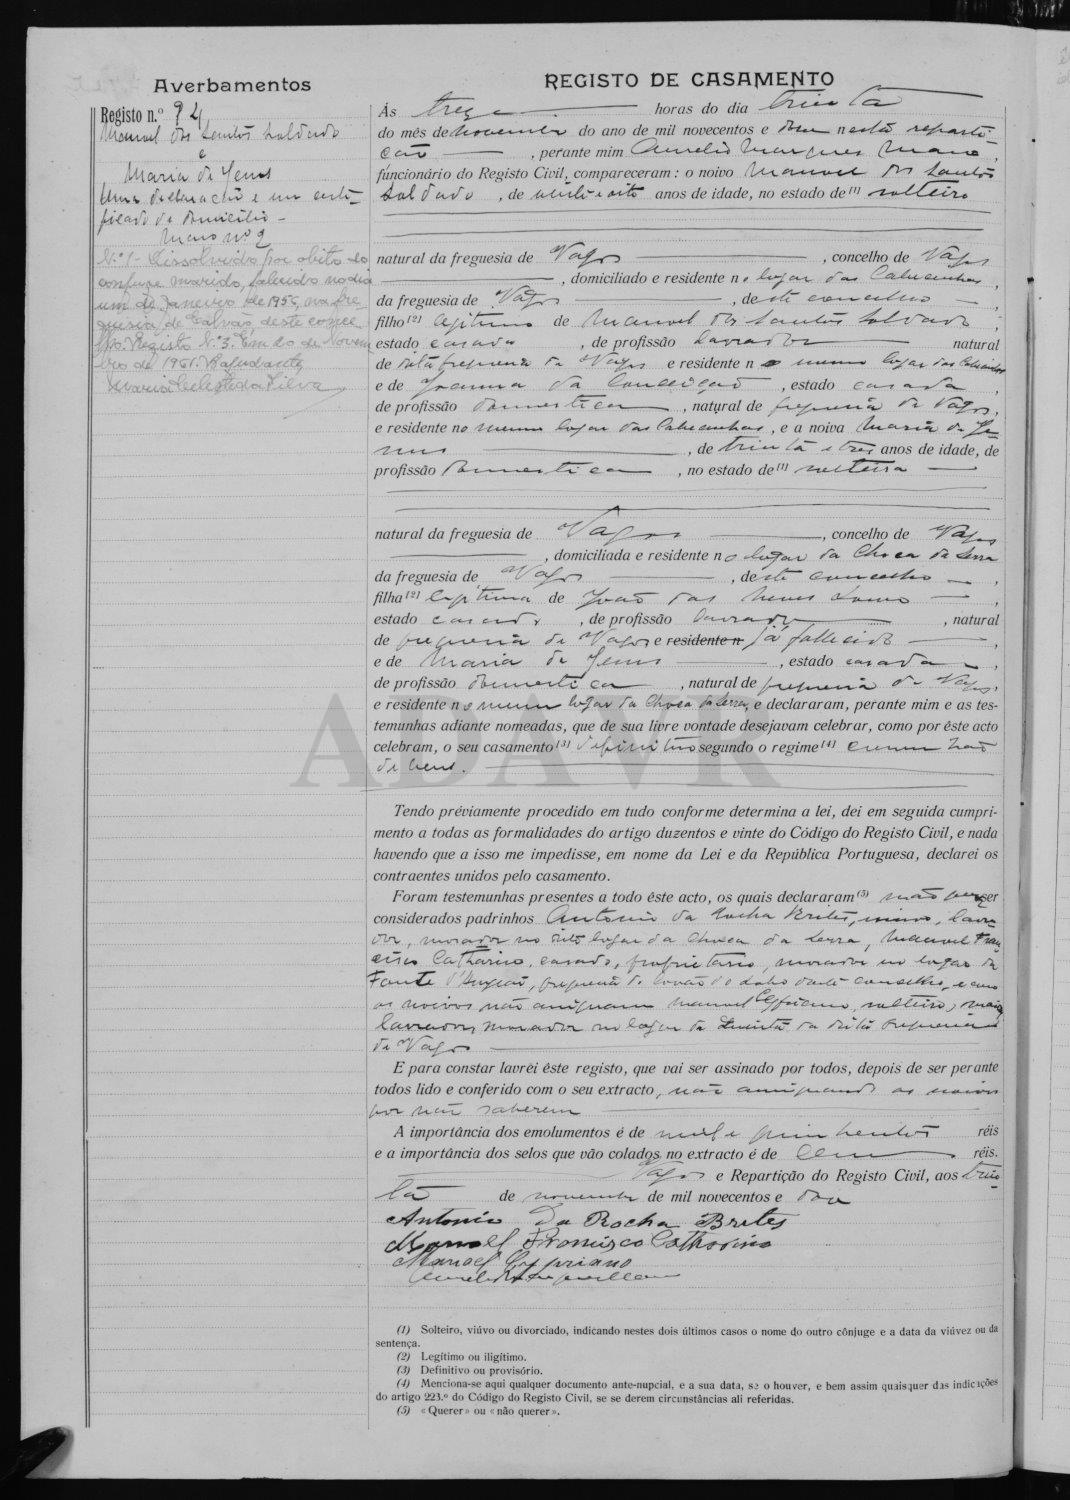 Averbamentos
Registo n.º 94
Manuel dos Santos Soldado
e
Maria de Jesus
Uma declaração e um certi-
ficado de domicilio -
Maço nº 2
N.º 1 - Dissolvido por obito do
conjuge marido, falecido no dia
um de Janeiro de 1955, na fre
guesia de Calvão, deste conce
lho. Registo N.º 3. Em 20 de Novem
bro de 1961. A ajudante
Maria Celeste da Silva
REGISTO DE CASAMENTO
Ás treze horas do dia trinta
do mês de novembro do ano de mil novecentos e doze nesta reparti-
ção, perante mim Aurelio Marques Mano,
funcionário do Registo Civil, compareceram: o noivo Manuel dos Santos
Soldado, de vinte e oito anos de idade, no estado de (1) solteiro
natural da freguesia de Vagos, concelho de Vagos
, domiciliado e residente no lugar das
da freguesia de Vagos, deste concelho,
filho (2) legitimo de Manuel dos Santos Soldado,
estado casado, de profissão lavrador natural
de dita freguesia de Vagos e residente no mesmo lugar das
e de Joanna da Conceição, estado casada,
de profissão domestica, natural de freguesia de Vagos,
e residente no mesmo lugar das, e a noiva Maria de Je-
sus, de trinta e tres anos de idade, de
profissão domestica, no estado de (1) solteira
natural da freguesia de Vagos, concelho de Vagos
, domiciliada e residente no lugar da Choca da Serra
da freguesia de Vagos, deste concelho,
filha (2) legitima de João das Neves,
estado casado, de profissão lavrador, natural
de freguesia de Vagos e residente n já fallecido
e de Maria de Jesus, estado casada,
de profissão domestica, natural de freguesia de Vagos,
e residente no mesmo lugar da Choca da Serra, e declararam, perante mim e as tes-
temunhas adiante nomeadas, que de sua livre vontade desejavam celebrar, como por êste acto
celebram, o seu casamento (3) definitivo segundo o regime (4) comunhão
de bens.
Tendo préviamente procedido em tudo conforme determina a lei, dei em seguida cumpri-
mento a todas as formalidades do artigo duzentos e vinte do Código do Registo Civil, e nada
havendo que a isso me impedisse, em nome da Lei e da República Portuguesa, declarei os
contraentes unidos pelo casamento.
Foram testemunhas presentes a todo êste acto, os quais declararam (5) não querer ser
considerados padrinhos Antonio da Rocha Brites, viuvo, lavra-
dor, morador no dito lugar da Choca da Serra, Manuel Fran-
cisco Catharino, casado, proprietario, morador no lugar da
Fonte d'Angeão, freguesia de Covão do Lobo deste concelho, e como
os noivos não assignam Manuel Cypriano, solteiro, maior,
lavrador, morador no lugar da Quintã da dita freguesia
de Vagos
E para constar lavrei êste registo, que vai ser assinado por todos, depois de ser perante
todos lido e conferido com o seu extracto, não assignando os noivos
por não saberem
A importância dos emolumentos é de mil e quinhentos réis
e a importância dos selos que vão colados no extracto é de cem réis.
Vagos e Repartição do Registo Civil, aos trin-
ta de novembro de mil novecentos e doze
Antonio Da Rocha Brites
Manoel Francisco Catharino
Manoel Cypriano
(1) Solteiro, viúvo ou divorciado, indicando nestes dois últimos casos o nome do outro cônjuge e a data da viúvez ou da
sentença.
(2) Legítimo ou iligítimo.
(3) Definitivo ou provisório.
(4) Menciona-se aqui qualquer documento ante-nupcial, e a sua data, se o houver, e bem assim quaisquer das indicações
do artigo 223.º do Código do Registo Civil, se se derem circunstâncias ali referidas.
(5) «Querer» ou «não querer».
ADAVR